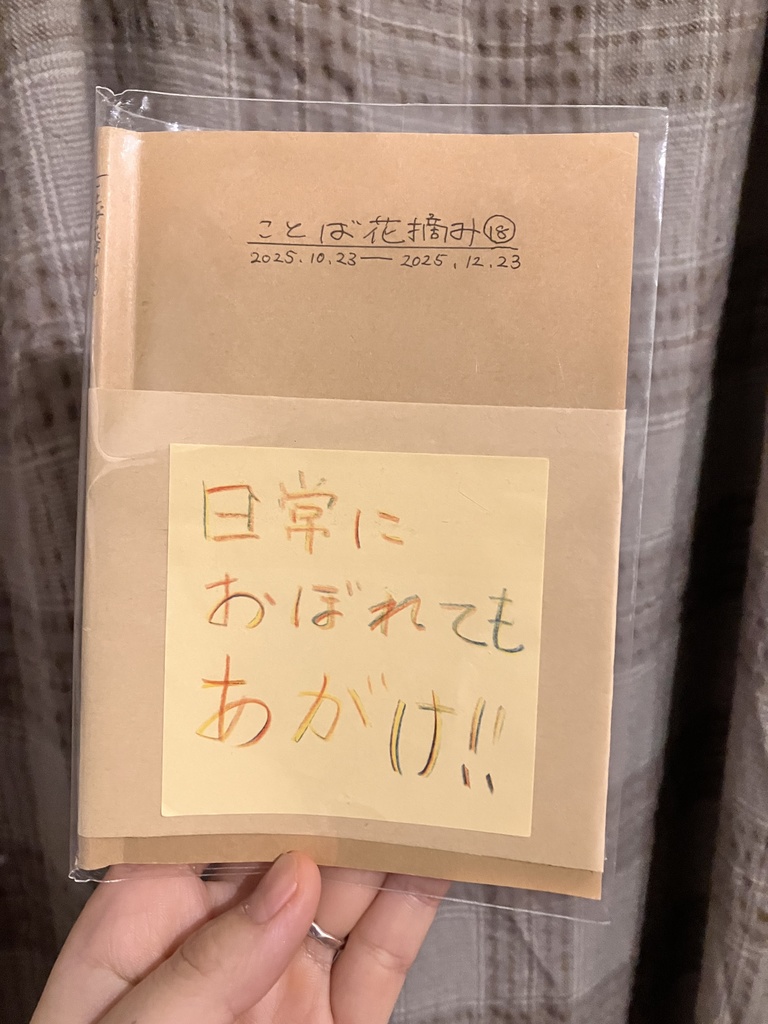 ことば花摘み⑱
2025.10.23ー2025.12.23
日常に
おぼれても
あがけ!!